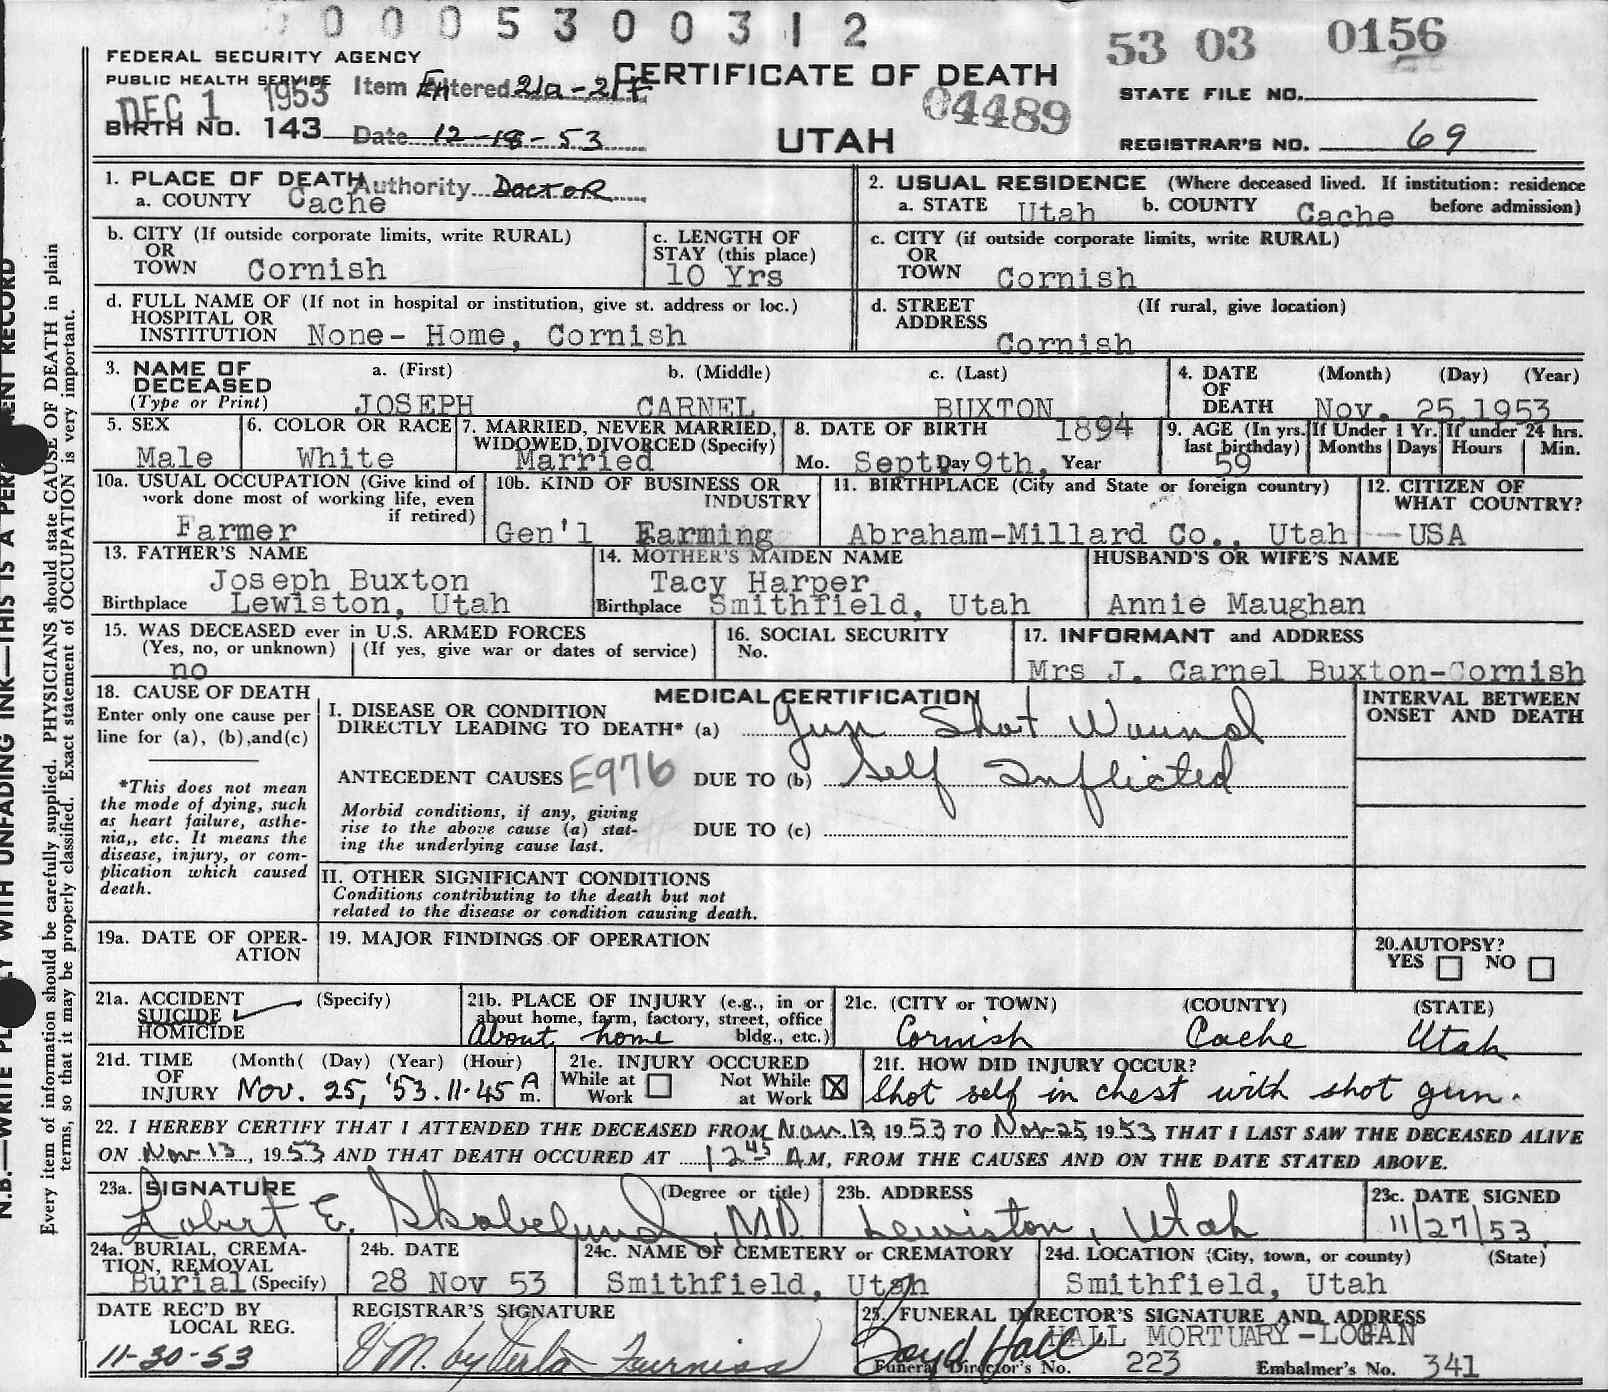 0 0 0 5 3 0 0 3 1 2
53 03 0156
FEDERAL SECURITY AGENCY
PUBLIC HEALTH SERVICE
DEC 1 1953
Item Entered 21a-21f
CERTIFICATE OF DEATH
04489
STATE FILE NO.
BIRTH NO. 143
Date 12-18-53
UTAH
REGISTRAR'S NO. 69
1. PLACE OF DEATH
Authority DOCTOR
a. COUNTY Cache
2. USUAL RESIDENCE (Where deceased lived. If institution: residence
a. STATE Utah b. COUNTY Cache before admission)
b. CITY (If outside corporate limits, write RURAL)
OR
TOWN Cornish
c. LENGTH OF
STAY (this place)
10 Yrs
c. CITY (if outside corporate limits, write RURAL)
OR
TOWN Cornish
d. FULL NAME OF (If not in hospital or institution, give st. address or loc.)
HOSPITAL OR
INSTITUTION None- Home, Cornish
d. STREET (If rural, give location)
ADDRESS
Cornish
3. NAME OF a. (First) b. (Middle) c. (Last)
DECEASED
(Type or Print) JOSEPH CARNEL BUXTON
4. DATE (Month) (Day) (Year)
OF
DEATH Nov. 25,1953
5. SEX
Male
6. COLOR OR RACE
White
7. MARRIED, NEVER MARRIED,
WIDOWED, DIVORCED (Specify)
Married
8. DATE OF BIRTH 1894
Mo. Sept Day 9th, Year
9. AGE (In yrs.
last birthday)
59
If Under 1 Yr.
Months Days
If under 24 hrs.
Hours Min.
10a. USUAL OCCUPATION (Give kind of
work done most of working life, even
if retired)
Farmer
10b. KIND OF BUSINESS OR
INDUSTRY
Gen'l Farming
11. BIRTHPLACE (City and State or foreign country)
Abraham-Millard Co., Utah
12. CITIZEN OF
WHAT COUNTRY?
USA
13. FATHER'S NAME
Joseph Buxton
Birthplace Lewiston, Utah
14. MOTHER'S MAIDEN NAME
Tacy Harper
Birthplace Smithfield, Utah
HUSBAND'S OR WIFE'S NAME
Annie Maughan
15. WAS DECEASED ever in U.S. ARMED FORCES
(Yes, no, or unknown) (If yes, give war or dates of service)
no
16. SOCIAL SECURITY
No.
17. INFORMANT and ADDRESS
Mrs J. Carnel Buxton-Cornish
18. CAUSE OF DEATH
Enter only one cause per
line for (a), (b),and(c)
*This does not mean
the mode of dying, such
as heart failure, asthe-
nia,, etc. It means the
disease, injury, or com-
plication which caused
death.
MEDICAL CERTIFICATION
I. DISEASE OR CONDITION
DIRECTLY LEADING TO DEATH* (a) Gun Shot Wound
ANTECEDENT CAUSES E976 DUE TO (b) Self Inflicted
Morbid conditions, if any, giving
rise to the above cause (a) stat-
ing the underlying cause last.
DUE TO (c)
INTERVAL BETWEEN
ONSET AND DEATH
II. OTHER SIGNIFICANT CONDITIONS
Conditions contributing to the death but not
related to the disease or condition causing death.
19a. DATE OF OPER-
ATION
19. MAJOR FINDINGS OF OPERATION
20.AUTOPSY?
YES NO
21a. ACCIDENT (Specify)
SUICIDE
HOMICIDE
21b. PLACE OF INJURY (e.g., in or
about home, farm, factory, street, office
bldg., etc.)
About home
21c. (CITY or TOWN) (COUNTY) (STATE)
Cornish Cache Utah
21d. TIME (Month( (Day) (Year) (Hour)
OF
INJURY Nov. 25, '53. 11-45 A m.
21e. INJURY OCCURED
While at Work Not While at Work X
21f. HOW DID INJURY OCCUR?
Shot self in chest with shot gun.
22. I HEREBY CERTIFY THAT I ATTENDED THE DECEASED FROM Nov. 13, 1953 TO Nov 25, 1953 THAT I LAST SAW THE DECEASED ALIVE
ON Nov 13, 1953 AND THAT DEATH OCCURED AT 12 45 A.M, FROM THE CAUSES AND ON THE DATE STATED ABOVE.
23a. SIGNATURE (Degree or title)
Robert E. Skabelund, M.D.
23b. ADDRESS
Lewiston, Utah
23c. DATE SIGNED
11/27/53
24a. BURIAL, CREMA-
TION, REMOVAL
Burial (Specify)
24b. DATE
28 Nov 53
24c. NAME OF CEMETERY or CREMATORY
Smithfield, Utah
24d. LOCATION (City, town, or county) (State)
Smithfield, Utah
DATE REC'D BY
LOCAL REG.
11-30-53
REGISTRAR'S SIGNATURE
Furniss
25. FUNERAL DIRECTOR'S SIGNATURE AND ADDRESS
HALL MORTUARY -LOGAN
Boyd Hall
Funeral Director's No. 223 Embalmer's No. 341
Every item of information should be carefully supplied. PHYSICIANS should state CAUSE OF DEATH in plain
terms, so that it may be properly classified. Exact statement of OCCUPATION is very important.
WITH UNFADING INK—THIS IS A
RECORD
N.B.—WRITE